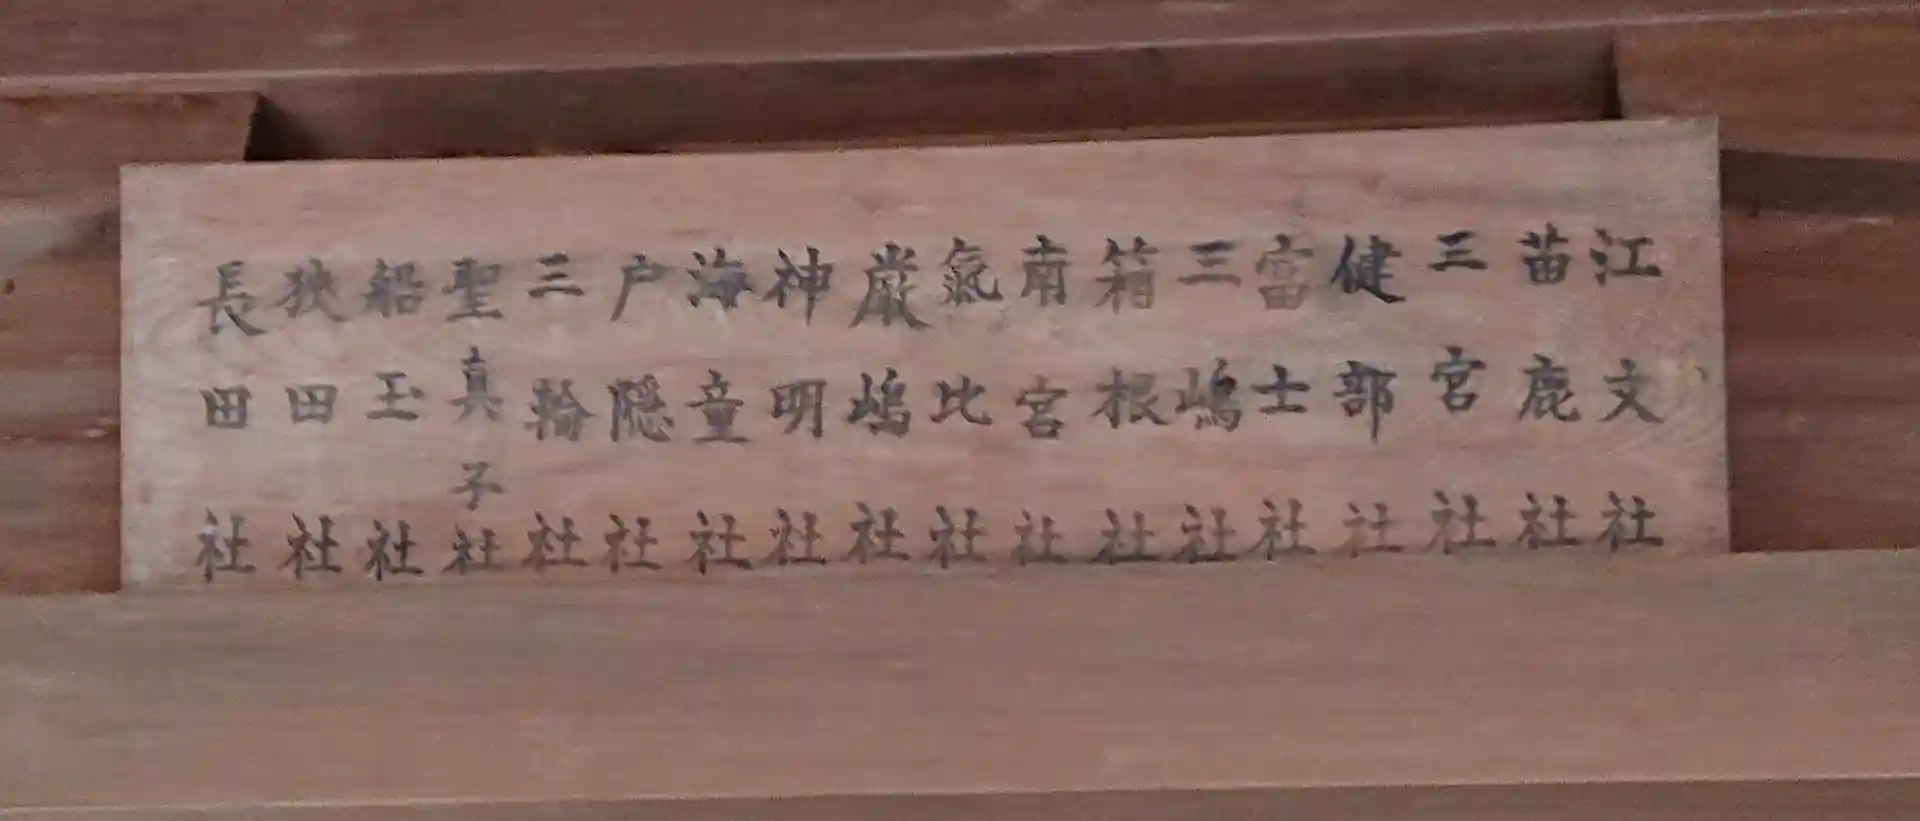 江文社
苗鹿社
三宮社
健部社
富士社
三嶋社
箱根社
南宮社
氣比社
嚴嶋社
神明社
海童社
戸隠社
三輪社
聖真子社
船玉社
狭田社
長田社